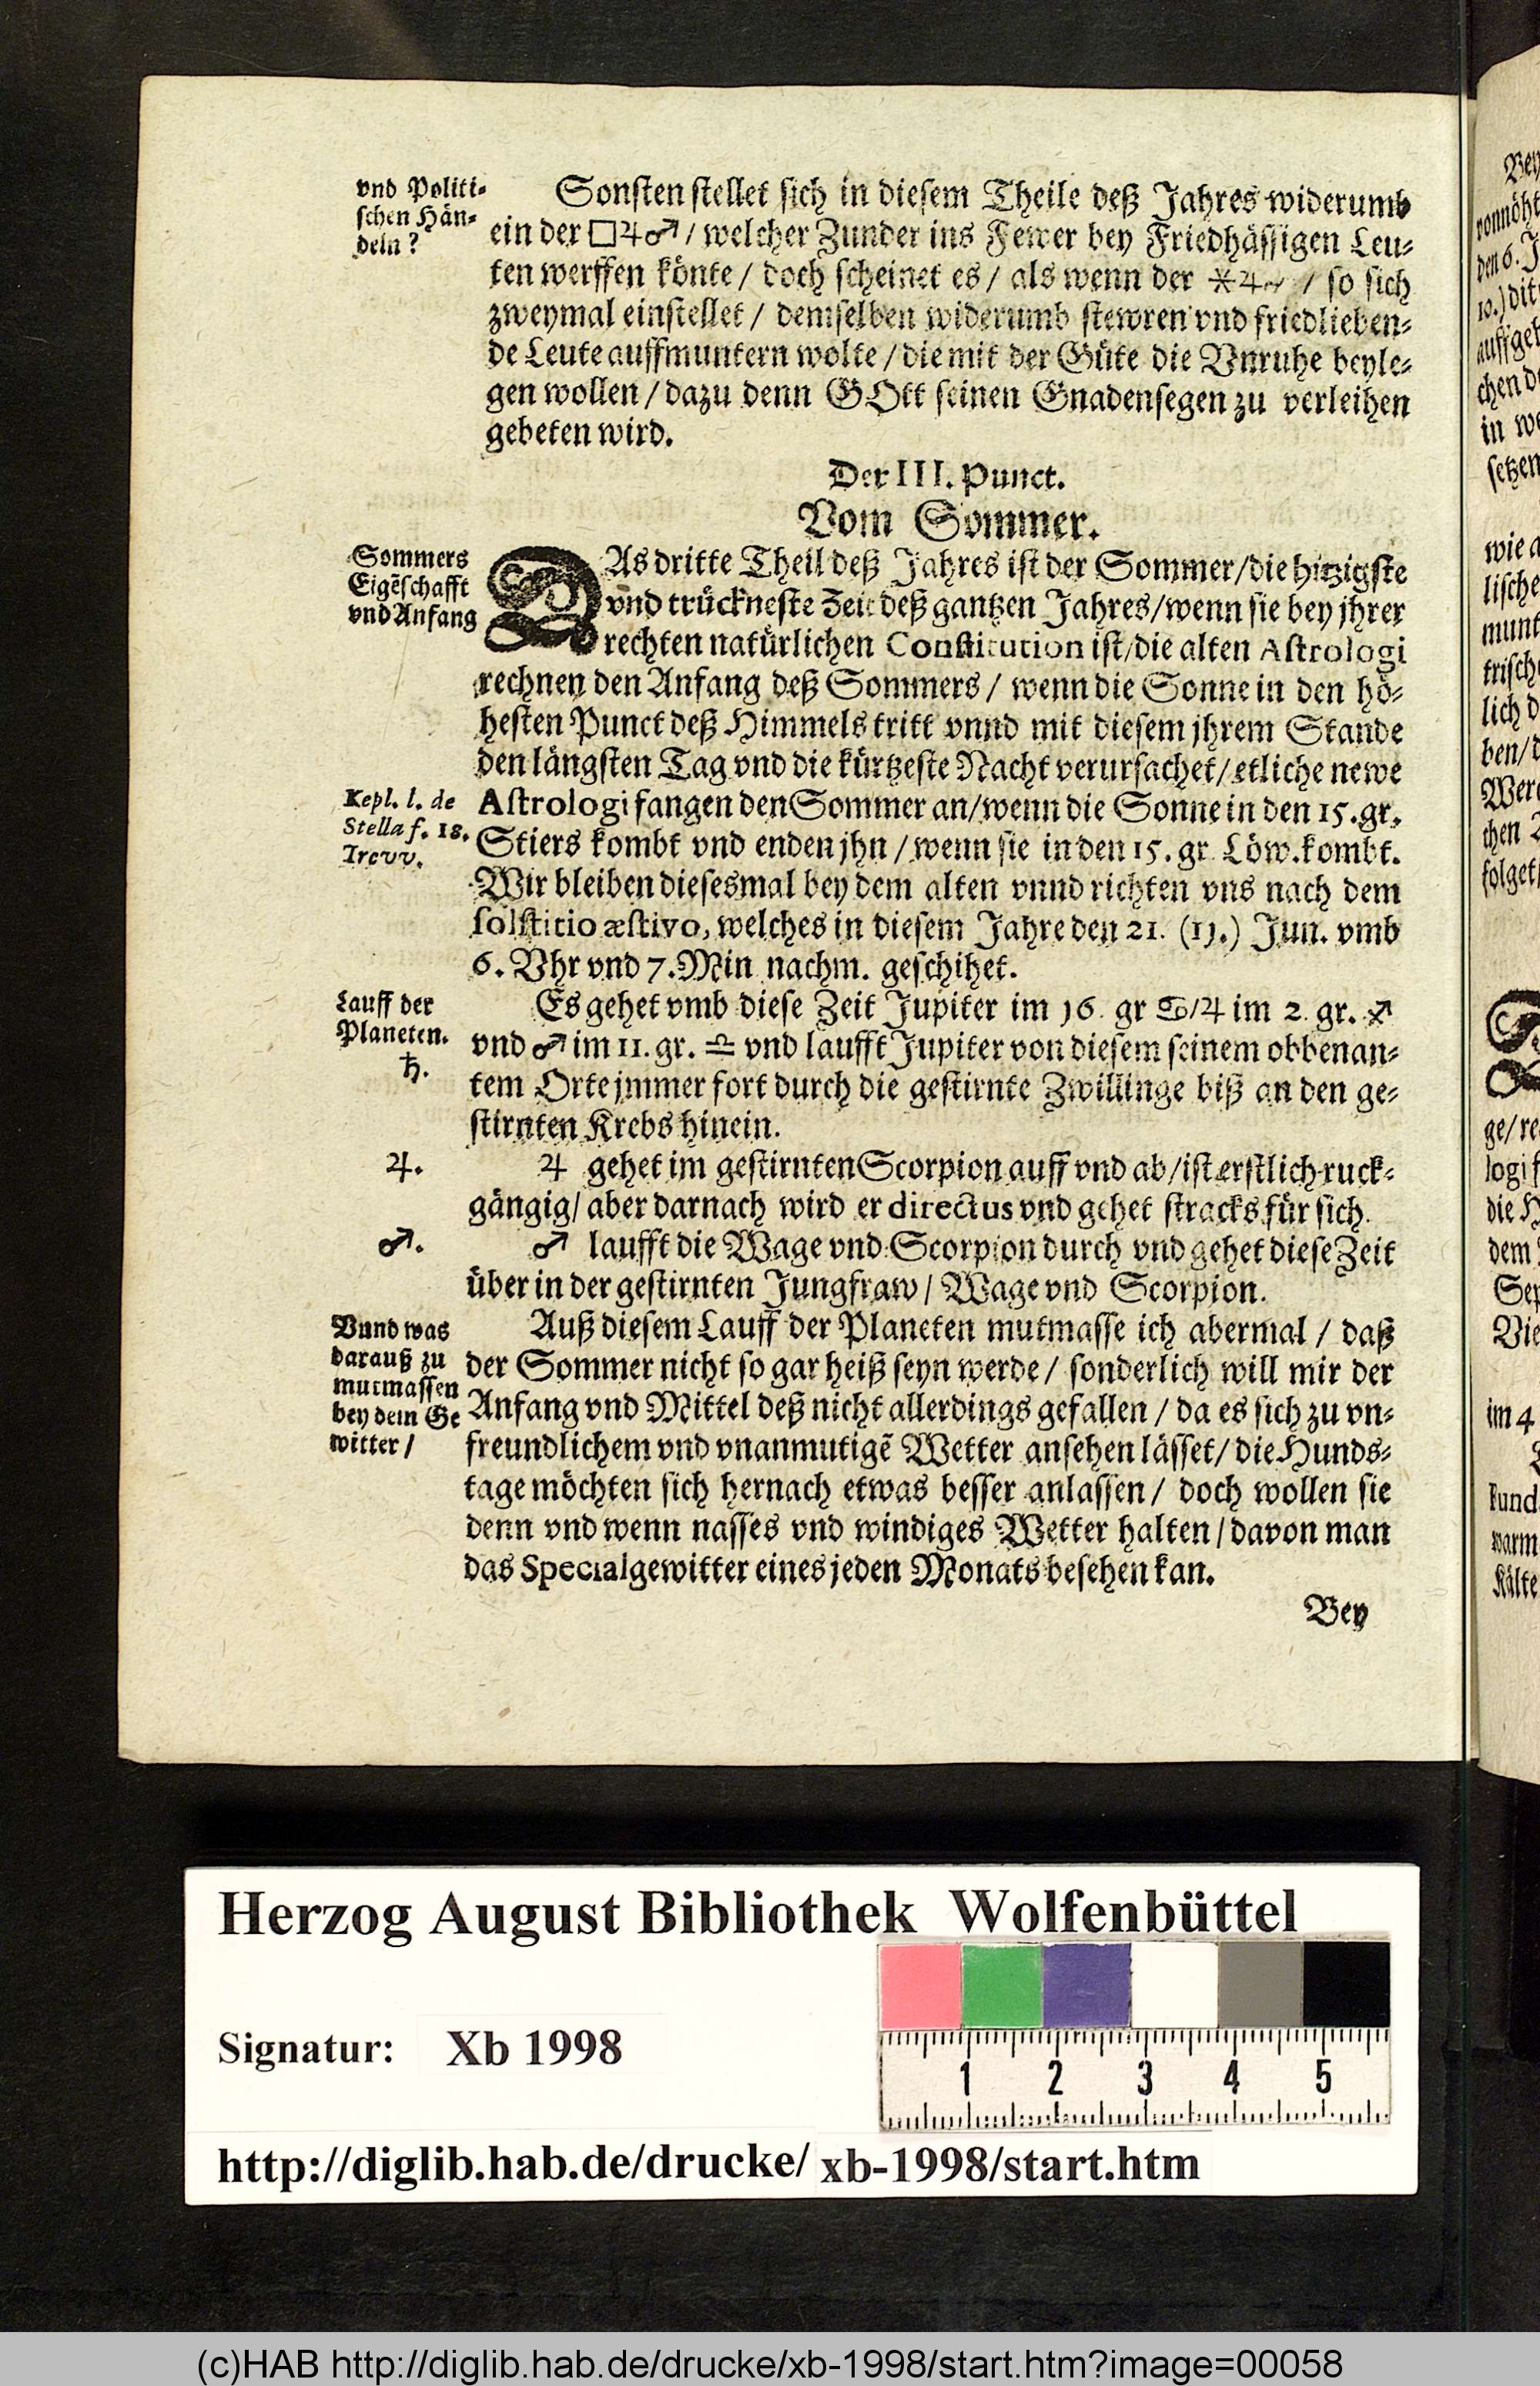 vnd Politi-
schen Hän-
deln?
Sonsten stellet sich in diesem Theile deß Jahres widerumb
ein der □♃♂ / welcher Zunder ins Fewer bey Friedhässigen Leu-
ten werffen könte / doch scheinet es / als wenn der ⚹♃ / so sich
zweymal einstellet / demselben widerumb stewren vnd friedlieben-
de Leute auffmuntern wolte / die mit der Güte die Vnruhe beyle-
gen wollen / dazu denn GOtt seinen Gnadensegen zu verleihen
gebeten wird.
Der III. Punct.
Vom Sommer.
Sommers
Eigẽschafft
vnd Anfang
DAs dritte Theil deß Jahres ist der Sommer / die hitzigste
vnd trückneste Zeit deß gantzen Jahres / wenn sie bey jhrer
rechten natürlichen Constitution ist / die alten Astrologi
rechnen den Anfang deß Sommers / wenn die Sonne in den hö-
hesten Punct deß Himmels tritt vnnd mit diesem jhrem Stande
den längsten Tag vnd die kürtzeste Nacht verursachet / etliche newe
Kepl. l. de
Stella f. 18.
Astrologi fangen den Sommer an / wenn die Sonne in den 15. gr.
Stiers kombt vnd enden jhn / wenn sie in den 15. gr. Löw. kombt.
Wir bleiben diesesmal bey dem alten vnnd richten vns nach dem
solstitio æstivo, welches in diesem Jahre den 21. (11.) Jun. vmb
6. Vhr vnd 7. Min nachm. geschihet.
Lauff der
Planeten.
♄.
Es gehet vmb diese Zeit Jupiter im 16. gr ♋ / ♃ im 2. gr. ♐
vnd ♂ im 11. gr. ♎ vnd laufft Jupiter von diesem seinem obbenan-
tem Orte jmmer fort durch die gestirnte Zwillinge biß an den ge-
stirnten Krebs hinein.
♃.
♃ gehet im gestirnten Scorpion auff vnd ab / ist erstlich ruck-
gängig / aber darnach wird er directus vnd gehet stracks für sich.
♂.
♂ laufft die Wage vnd Scorpion durch vnd gehet diese Zeit
über in der gestirnten Jungfraw / Wage vnd Scorpion.
Vnnd was
darauß zu
mutmassen
bey dem Ge
witter /
Auß diesem Lauff der Planeten mutmasse ich abermal / daß
der Sommer nicht so gar heiß seyn werde / sonderlich will mir der
Anfang vnd Mittel deß nicht allerdings gefallen / da es sich zu vn-
freundlichem vnd vnanmutigẽ Wetter ansehen lässet / die Hunds-
tage möchten sich hernach etwas besser anlassen / doch wollen sie
denn vnd wenn nasses vnd windiges Wetter halten / davon man
das Specialgewitter eines jeden Monats besehen kan.
Bey
Herzog August Bibliothek Wolfenbüttel
Signatur: Xb 1998
1 2 3 4 5
http://diglib.hab.de/drucke/ xb-1998/start.htm
(c)HAB http://diglib.hab.de/drucke/xb-1998/start.htm?image=00058